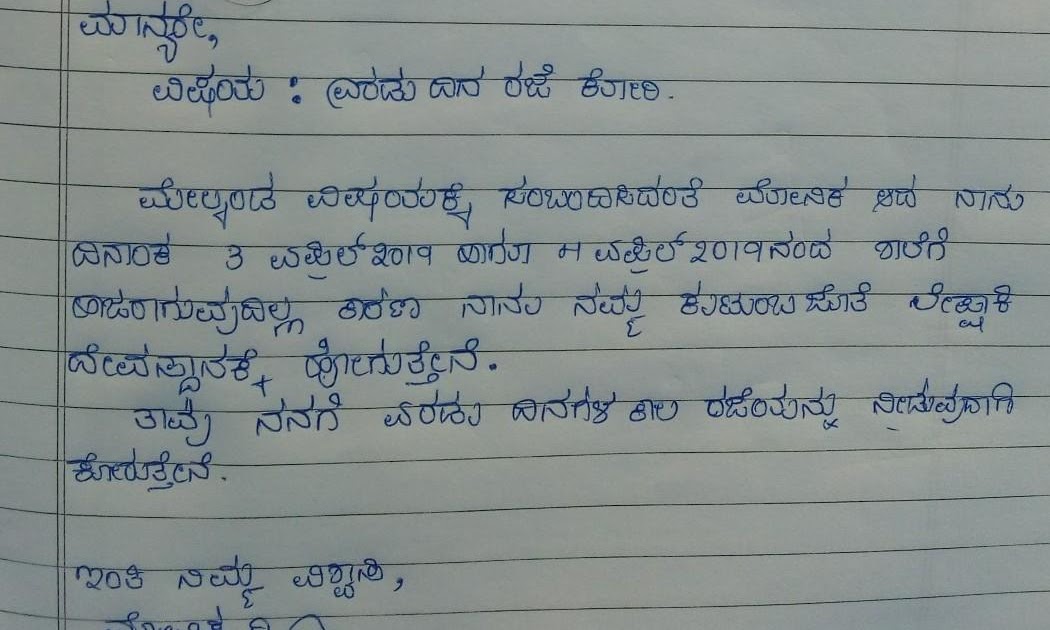 ಮಾನ್ಯರೇ,
ವಿಷಯ : ಎರಡು ದಿನ ರಜೆ ಕೋರಿ.
ಮೇಲ್ಕಂಡ ವಿಷಯಕ್ಕೆ ಸಂಬಂದಿಸಿದಂತೆ ಮೋನಿಕ ಆದ ನಾನು
ದಿನಾಂಕ 3 ಏಪ್ರಿಲ್ 2019 ಹಾಗೂ 4 ಏಪ್ರಿಲ್ 2019ನಂದ ಶಾಲೆಗೆ
ಹಾಜರಾಗುವುದಿಲ್ಲ ಕಾರಣ ನಾನು ನಮ್ಮ ಕುಟುಂಬ ಜೊತೆ
ದೇವಸ್ಥಾನಕ್ಕೆ ಹೋಗುತ್ತೇನೆ.
ತಾವು ನನಗೆ ಎರಡು ದಿನಗಳ ಕಾಲ ರಜೆಯನ್ನು ನೀಡುವುದಾಗಿ
ಕೋರುತ್ತೇನೆ.
ಇಂತಿ ನಿಮ್ಮ ವಿಶ್ವಾಸಿ,